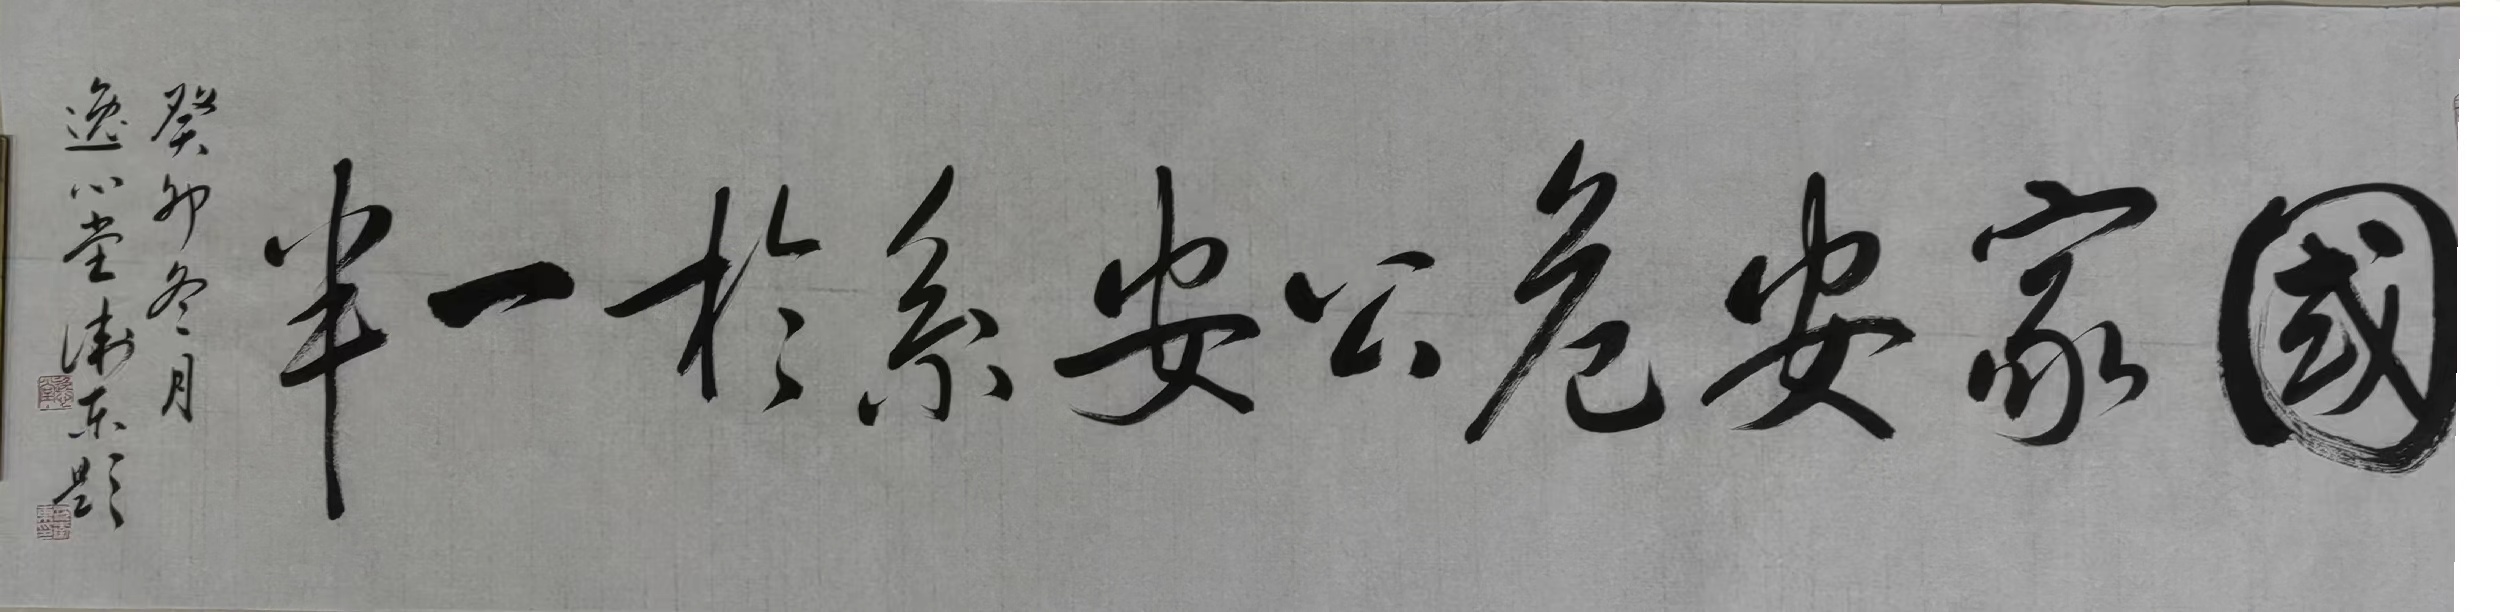 國家安危公安系於一半
癸卯冬月
逸心堂衛東題